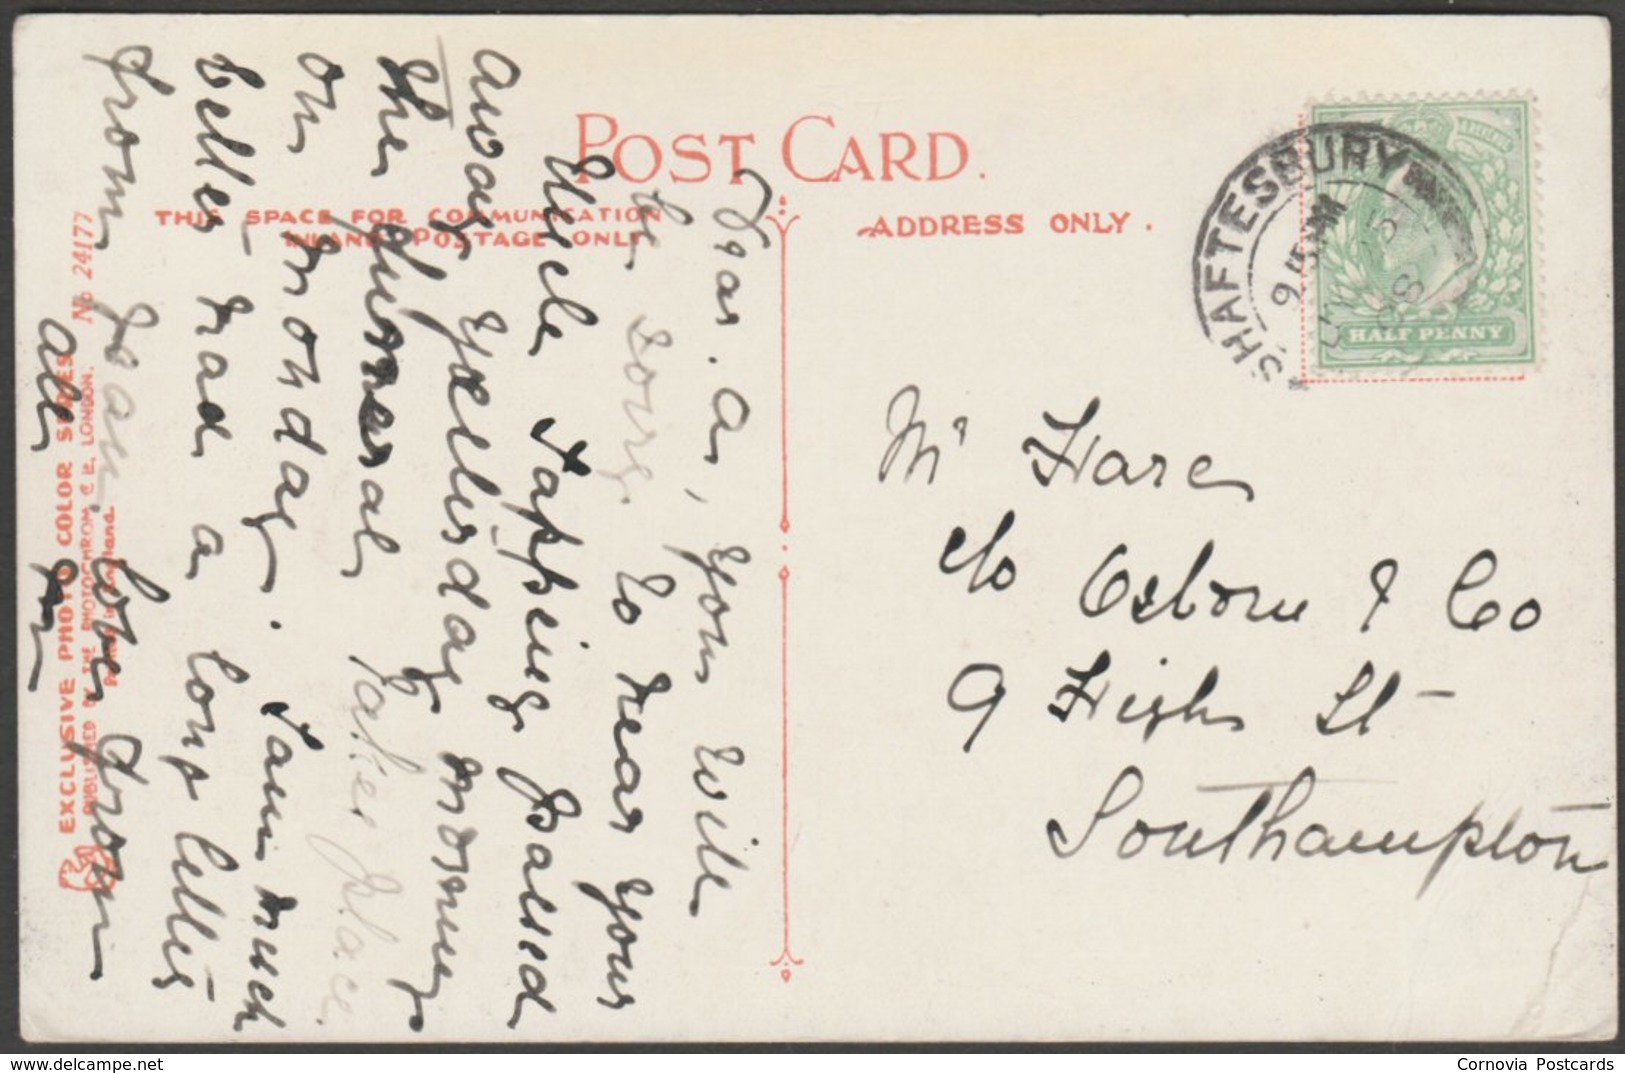 POST CARD.
THIS SPACE FOR COMMUNICATION
INLAND POSTAGE ONLY
ADDRESS ONLY.
SHAFTESBURY
9 15 PM
HALF PENNY
Mr Hare
c/o Osborne & Co
9 High St
Southampton
Dear. A, you will
be sorry to hear your
Uncle Tapping passed
away yesterday morning
the funeral takes place
on Monday. I am much
better had a long letter
from Jean. love from
all
EXCLUSIVE PHOTO-COLOR SERIES No 24177
PUBLISHED BY THE PHOTOCHROM Co Ld., LONDON.
Cornovia Postcards